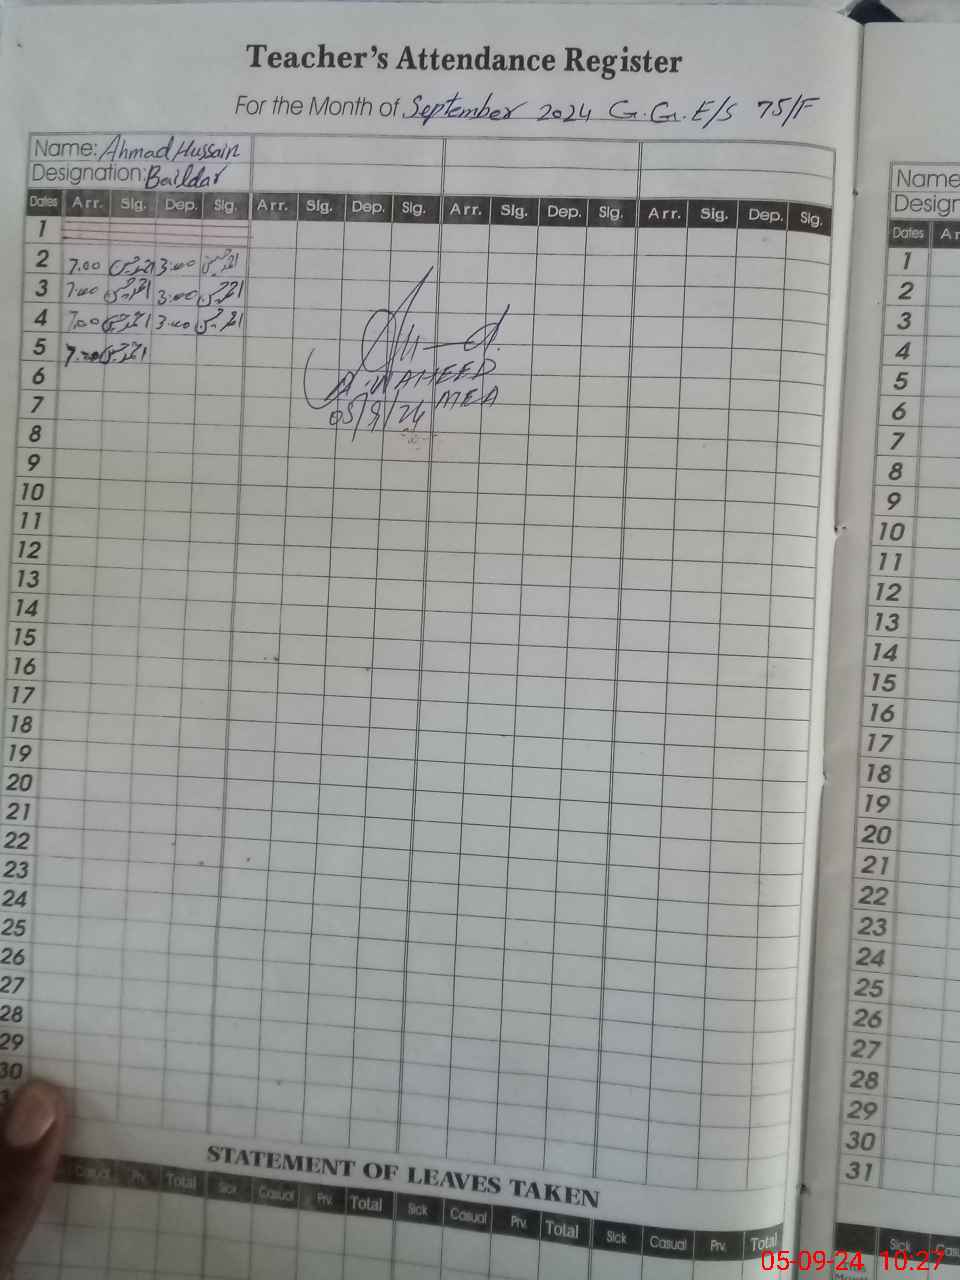 Teacher's Attendance Register
For the Month of September 2024 G.G.E/S 75/F
Name: Ahmad Hussain
Designation: Baildar
Dates Arr. Sig. Dep. Sig. Arr. Sig. Dep. Sig. Arr. Sig. Dep. Sig. Arr. Sig. Dep. Sig.
1
2 7.00 احمد حسین 3:00 احمد حسین
3 7:00 احمد حسین 3:00 احمد حسین
4 7:00 احمد حسین 3:00 احمد حسین
5 7:00 احمد حسین
6
A.WAHEED
7
MEA
05/9/24
8
9
10
11
12
13
14
15
16
17
18
19
20
21
22
23
24
25
26
27
28
29
30
STATEMENT OF LEAVES TAKEN
Casual Prv. Total Sick Casual Prv. Total Sick Casual Prv. Total Sick Casual Prv. Total
Name
Design
Dates Ar
1
2
3
4
5
6
7
8
9
10
11
12
13
14
15
16
17
18
19
20
21
22
23
24
25
26
27
28
29
30
31
Sick Casu
05-09-24 10:27